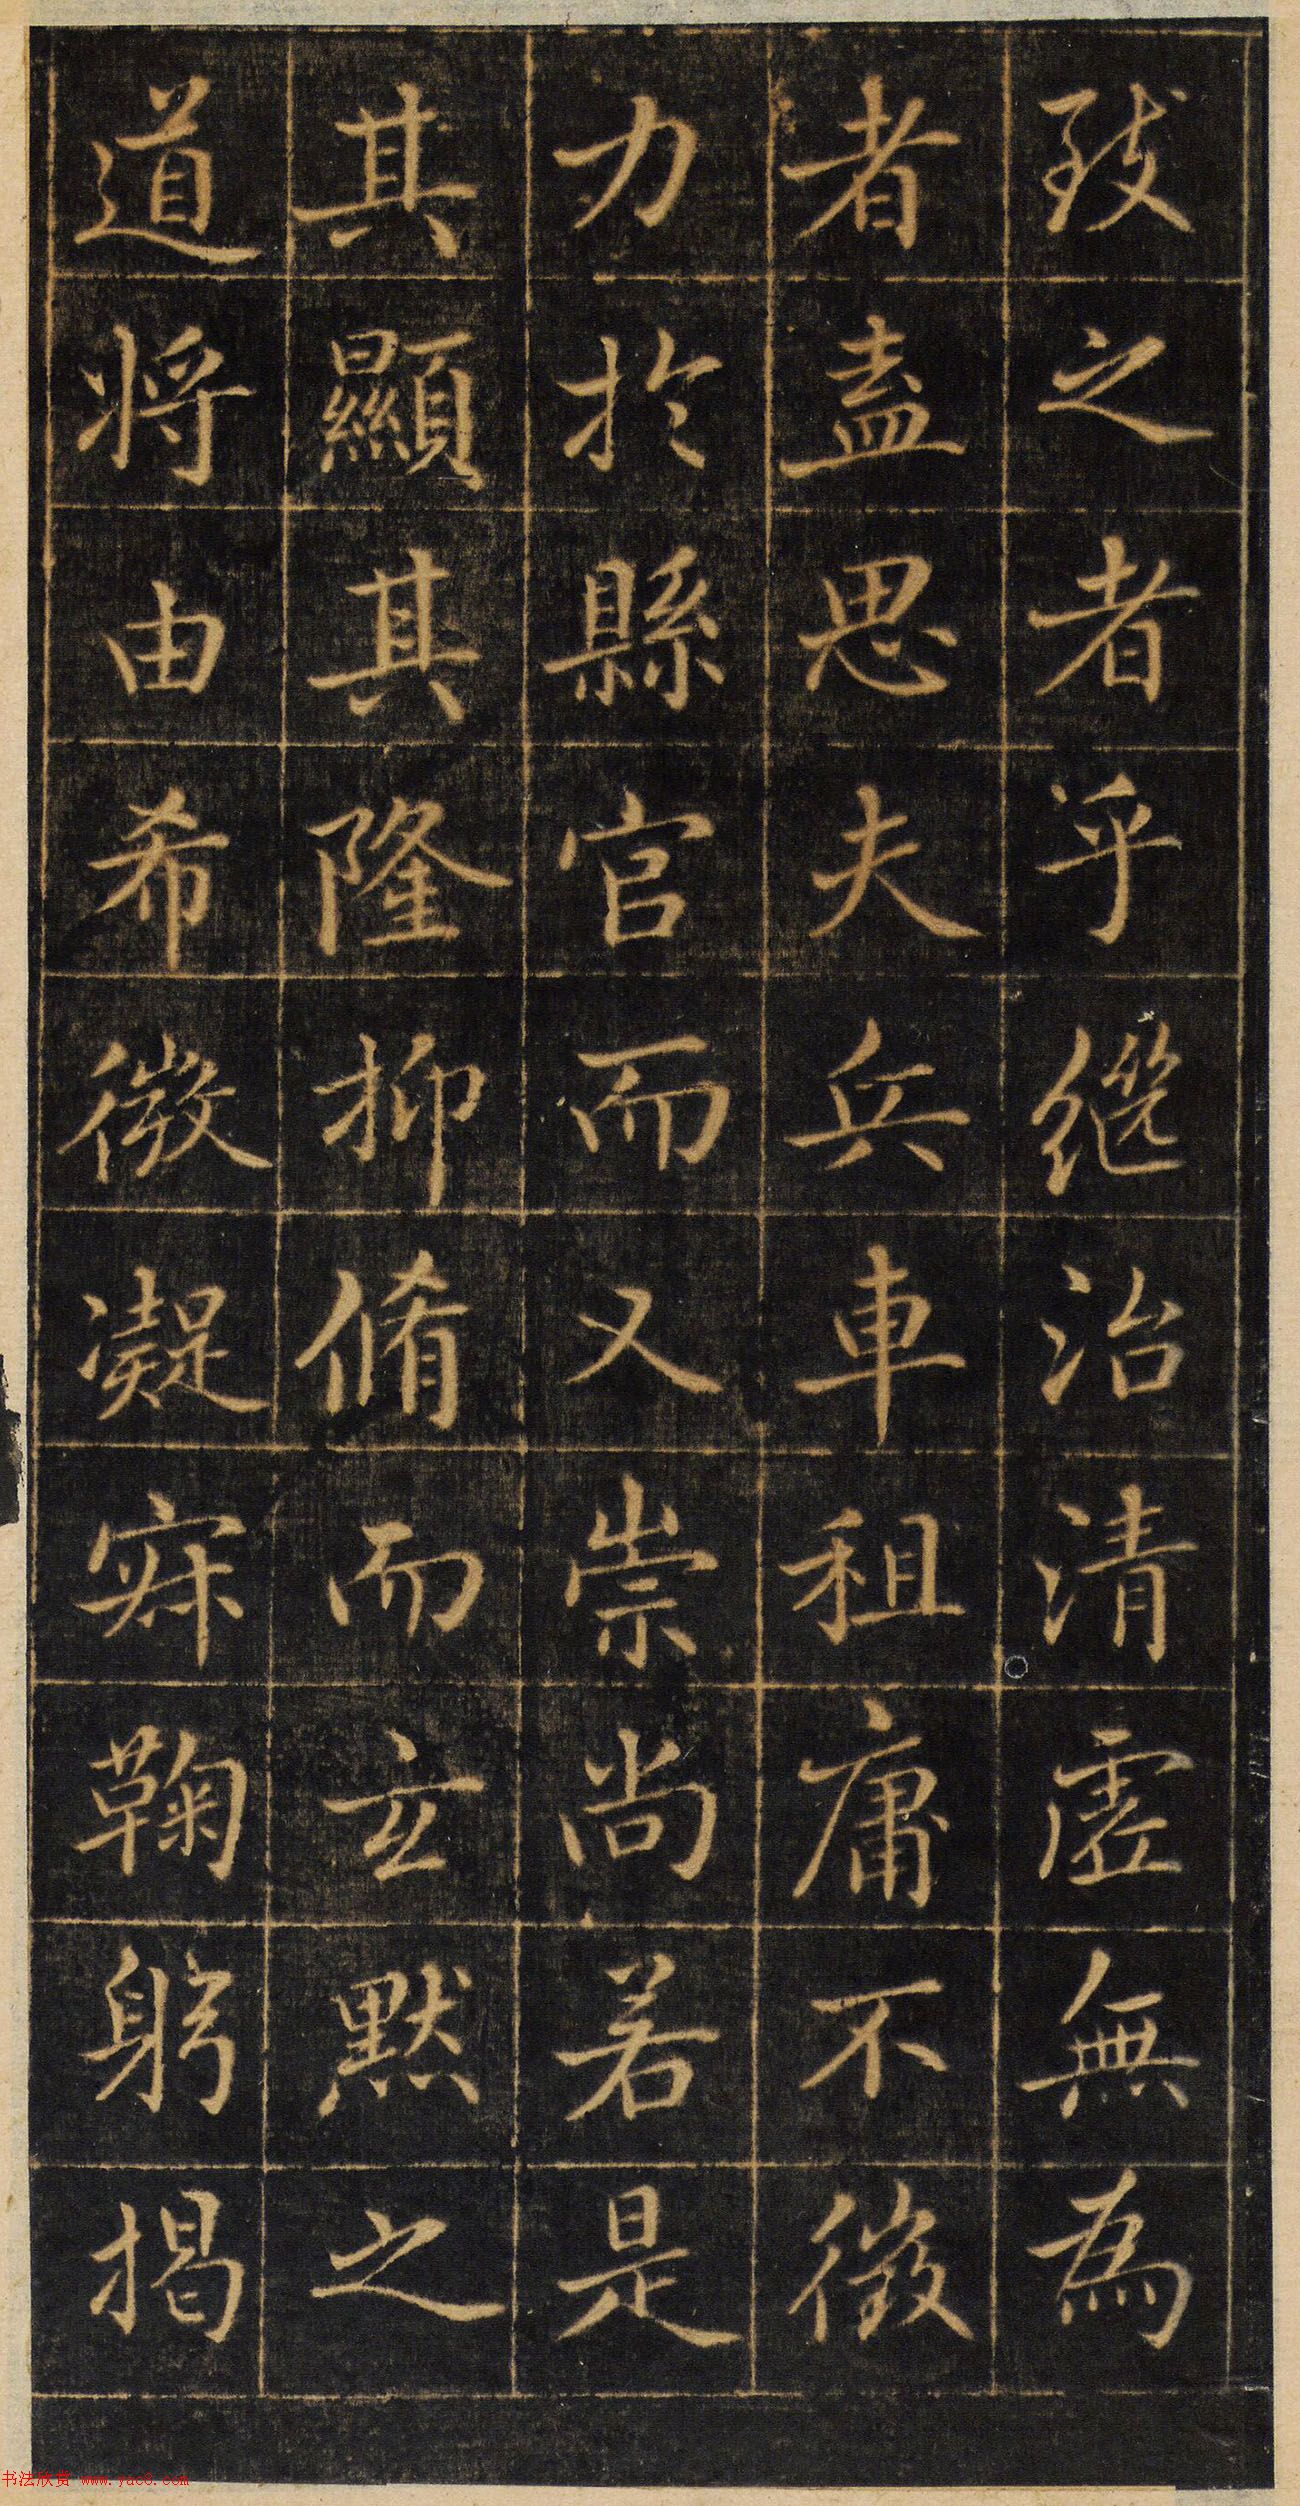 致之者乎繼治清虛無為
者盍思夫兵車租庸不徵
力於縣官而又崇尚若是
其顯其隆抑脩而玄默之
道將由希微凝寂鞠躬揭
书法欣赏 www.yac8.com